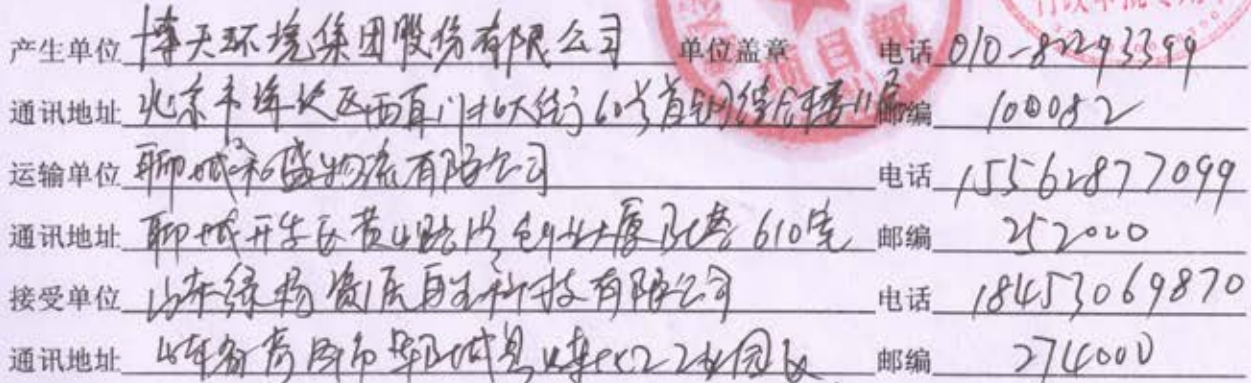 产生单位 博天环境集团股份有限公司 单位盖章 电话 010-82293399
通讯地址 北京市海淀区西直门北大街60号首钢综合楼11层 邮编 100082
运输单位 聊城和盛物流有限公司 电话 15562877099
通讯地址 聊城开发区黄山路1号创业大厦B座610室 邮编 252000
接受单位 山东绿扬资源再生科技有限公司 电话 18453069870
通讯地址 山东省菏泽市郓城县 工业园区 邮编 274000
项目部